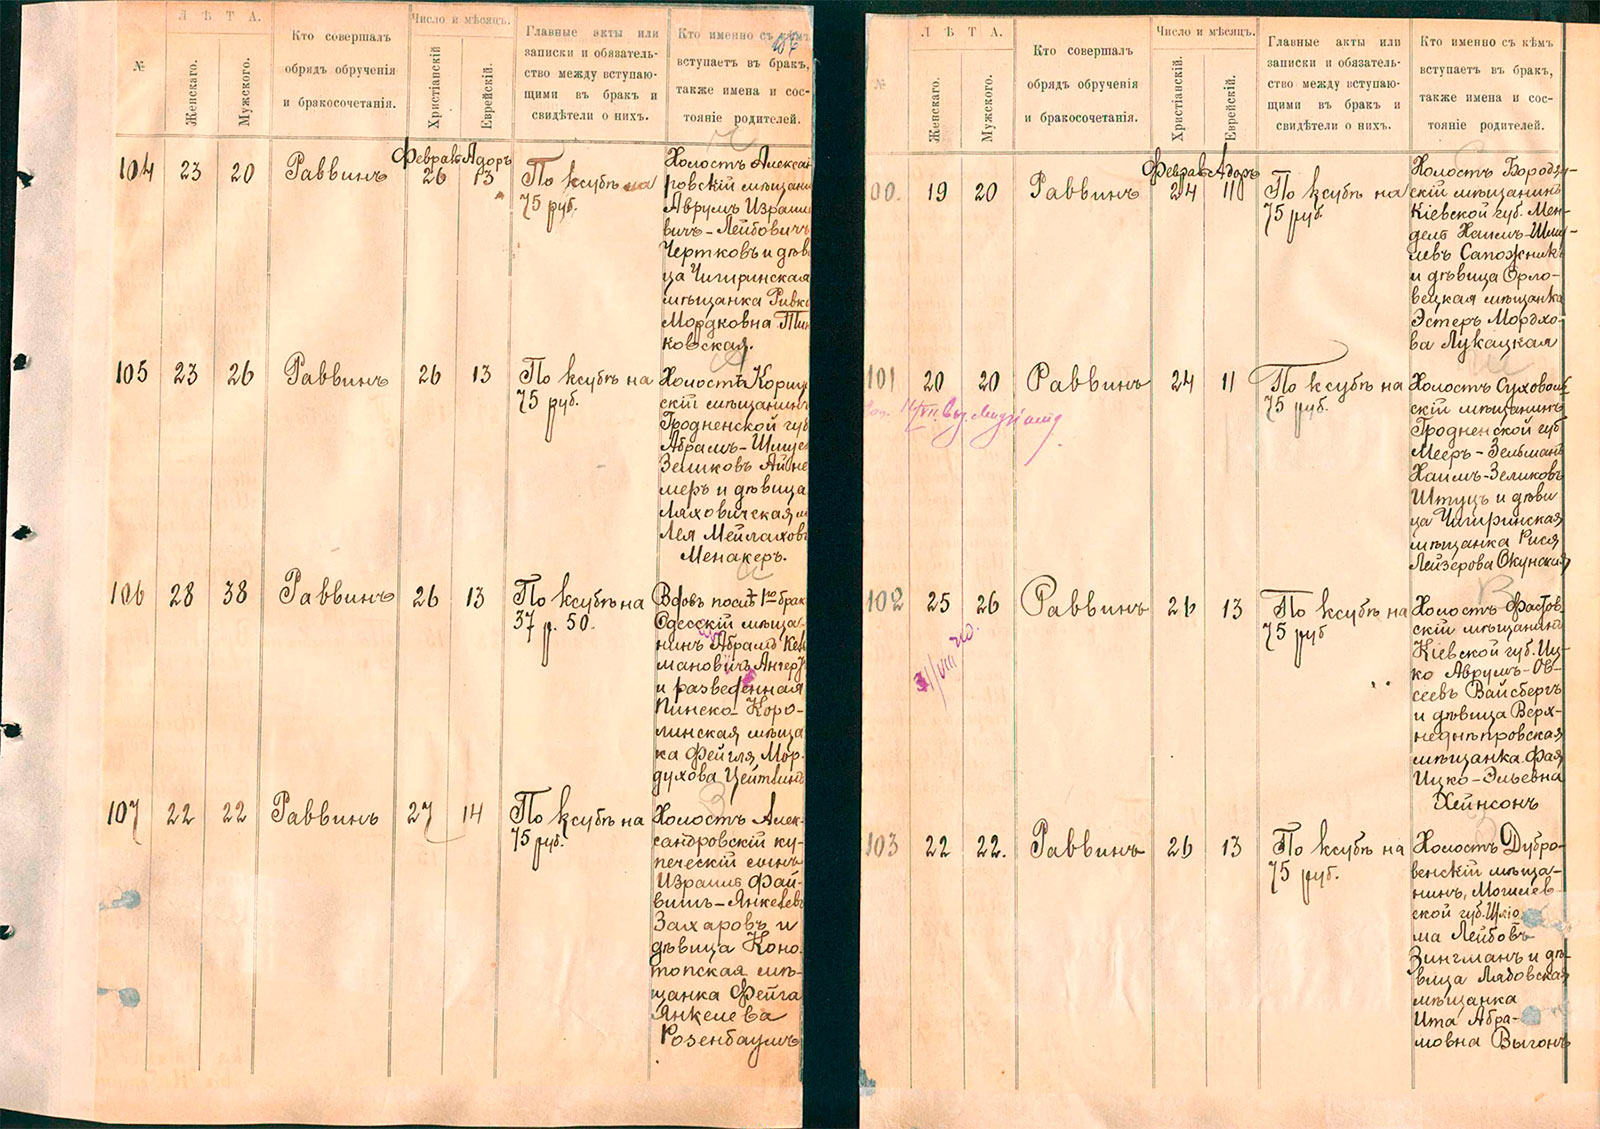 107
№
Л Ѣ Т А.
Женскаго.
Мужского.
Кто совершалъ
обрядъ обрученія
и бракосочетанія.
Число и мѣсяцъ.
Христіанскій
Еврейскій.
Главные акты или
записки и обязатель-
ство между вступаю-
щими въ бракъ и
свидѣтели о нихъ.
Кто именно съ кѣмъ
вступаетъ въ бракъ,
также имена и сос-
тояніе родителей.
Февраль Адоръ
104 23 20 Раввинъ 26 13
По ксубѣ на
75 руб.
Холостъ Алексан
ровскій мѣщани
Аврумъ Израил
вичъ-Лейбовичъ
Чертковъ и дѣв
ца Чигиринская
мѣщанка Ривк
Мордковна
ковская.
105 23 26 Раввинъ 26 13
По ксубѣ на
75 руб.
Холостъ
скій мѣщанинъ
Гродненской губ
Абрамъ-Шмуе
Зеликовъ
меръ и дѣвица
Ляховичская м
Лея Мейлахов
Менакеръ.
106 28 38 Раввинъ 26 13
По ксубѣ на
37 р. 50.
Вдовъ послѣ 1го брак
Одесскій мѣща-
нинъ Абрамъ
мановичъ
и разведенная
Пинско-Каро-
линская мѣща
ка Фейгля Мор-
духова Цейтлинъ
107 22 22 Раввинъ 27 14
По ксубѣ на
75 руб.
Холостъ Алек-
сандровскій ку-
печескій сынъ
Израиль Фай-
вишъ-Янкелевъ
Захаровъ и
дѣвица Коно-
топская мѣ-
щанка Фейга
Янкелева
Розенбаумъ
№
Л Ѣ Т А.
Женскаго.
Мужского.
Кто совершалъ
обрядъ обрученія
и бракосочетанія.
Число и мѣсяцъ.
Христіанскій.
Еврейскій.
Главные акты или
записки и обязатель-
ство между вступаю-
щими въ бракъ и
свидѣтели о нихъ.
Кто именно съ кѣмъ
вступаетъ въ бракъ,
также имена и сос-
тояніе родителей.
Февраль Адоръ
00. 19 20 Раввинъ 24 11
По ксубѣ на
75 руб.
Холостъ Бородян-
скій мѣщанинъ
Кіевской губ. Мен-
дель Хаимъ-Шму-
левъ Сапожникъ
и дѣвица Орло-
вецкая мѣщанка
Эстеръ Мордхо-
ва Лукацкая
101 20 20 Раввинъ 24 11
По ксубѣ на
75 руб.
Холостъ Суховол
скій мѣщанинъ
Гродненской губ
Мееръ-Зельманъ
Хаимъ-Зеликовъ
Штуцъ и дѣви
ца Чигиринская
мѣщанка Рися
Лейзерова Окунская
102 25 26 Раввинъ 26 13
По ксубѣ на
75 руб
Холостъ Фастов
скій мѣщанинъ
Кіевской губ. Иц-
ко Аврумъ-Ов-
сеевъ Вайсбергъ
и дѣвица Верх-
неднѣпровская
мѣщанка Фая
Ицко-Эльевна
Хейнсонъ
103 22 22. Раввинъ 26 13
По ксубѣ на
75 руб.
Холостъ Дубро-
венскій мѣща-
нинъ, Могилев-
ской губ. Шліо-
ма Лейбовъ
Зингманъ и дѣ-
вица Лядовская
мѣщанка
Ита Абра-
мовна Выгонъ